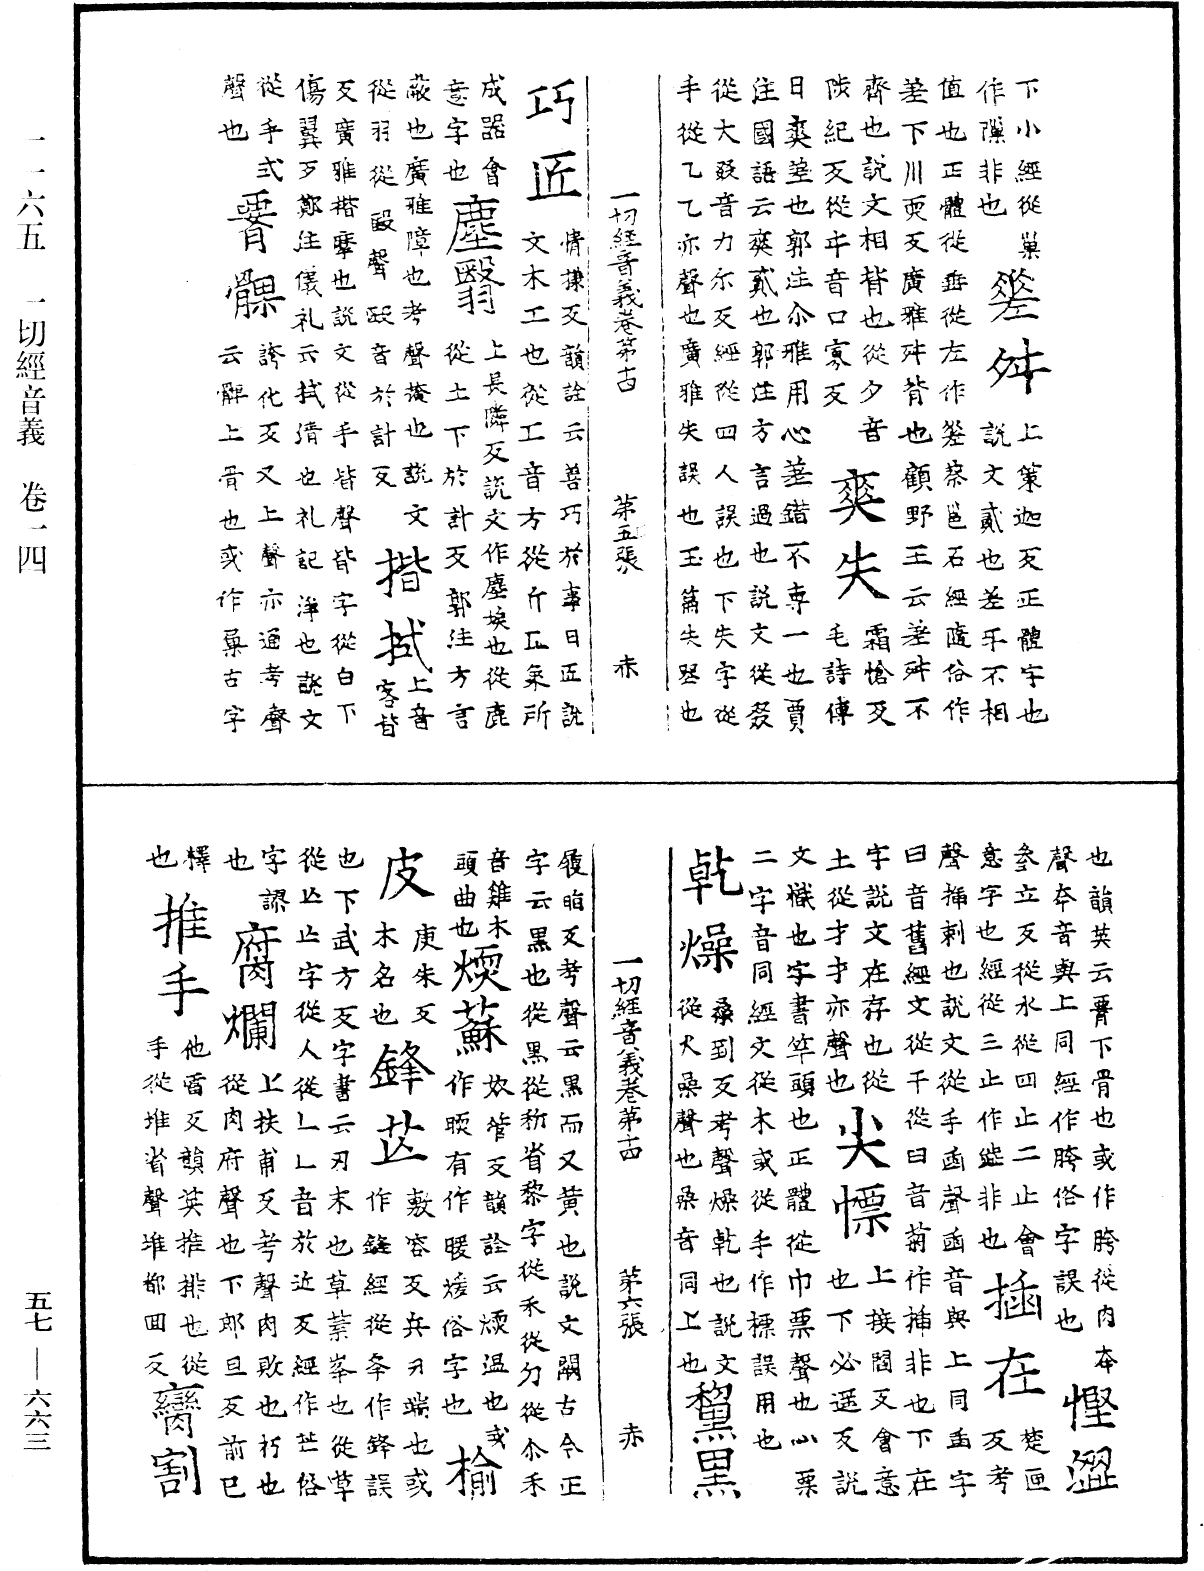 一一六五　一切經音義　卷一四
下小經從巢
作
非也
差舛
上策迦反正體字也
說文貳也差手不相
值也正體從
從左作
蔡邕石經隨俗作
差下川耎反廣雅舛背也顧野王云差舛不
齊也說文相背也從夕音
陟紀反從㐄音口寡反
爽失
霜愴反
毛詩傳
日爽差也郭注尒雅用心差錯不專一也賈
注國語云爽貳也郭注方言過也說文從㸚
從大㸚音力尒反經從四人誤也下失字從
手從乙乙亦聲也廣雅失誤也玉篇失
也
一切經音義卷第十四　第五張　赤
巧匠
情樣反韻詮云善巧於事曰匠說
文木工也從工音方從斤匠象所
成器會
意字也
塵翳
上長隣反說文作塵埃也從鹿
從土下於計反郭注方言
蔽也廣雅障也考聲掩也說文
從羽從殹聲殹音於計反
揩拭
上音
客皆
反廣雅揩摩也說文從手皆聲皆字從白下
傷翼反鄭注儀礼云拭清也礼記淨也說文
從手式
聲也
䯊髁
誇化反又上聲亦通考聲
云髀上骨也或作
古字
也韻英云䯊下骨也或作胯從肉夲
聲夲音與上同經作胯俗字誤也
慳澀
參立反從水從四止二止會
意字也經從三止作澁非也
插在
楚匣
反考
聲揷刺也說文從手臿聲臿音與上同臿字
曰音舊經文從干從曰音菊作揷非也下在
字說文在存也從
土從才才亦聲也
尖㯹
上接閻反會意
也下必遥反說
文幟也字書竿頭也正體從巾票聲也
二字音同經文從木或從手作標誤用也
乾燥
桑到反考聲燥乾也說文
從火喿聲也喿音同上也
黧黑
履
反考聲云黑而又黃也說文闕古今正
字云黑也從黑從秎省黎字從禾從勿從尒禾
音雞木
頭曲也
煗蘇
奴管反韻詮云煗溫也或
作㬉有作暖煖俗字也
榆
皮
庚朱反
木名也
鋒芒
敷容反兵刃端也或
作鏠經從夆作鋒誤
也下武方反字書云刃末也草蘂峯也從草
從亾亾字從人從乚乚音於近反經作芒俗
字誤
也
腐爛
上扶甫反考聲肉敗也朽也
從肉府聲也下郎旦反前已
釋
也
推手
他雷反韻英推排也從
手從堆省聲堆都回反
臠割
一切經音義卷第十四　第六張　赤
五七—六六三